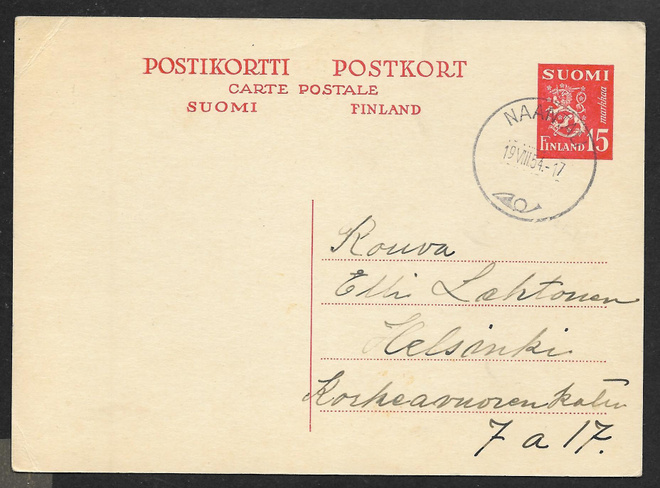 POSTIKORTTI POSTKORT
CARTE POSTALE
SUOMI FINLAND
SUOMI
markkaa
FINLAND 15
19.VIII.54.-17
Rouva
Elli Lehtonen
Helsinki
Korkeavuorenkatu
7 a 17.